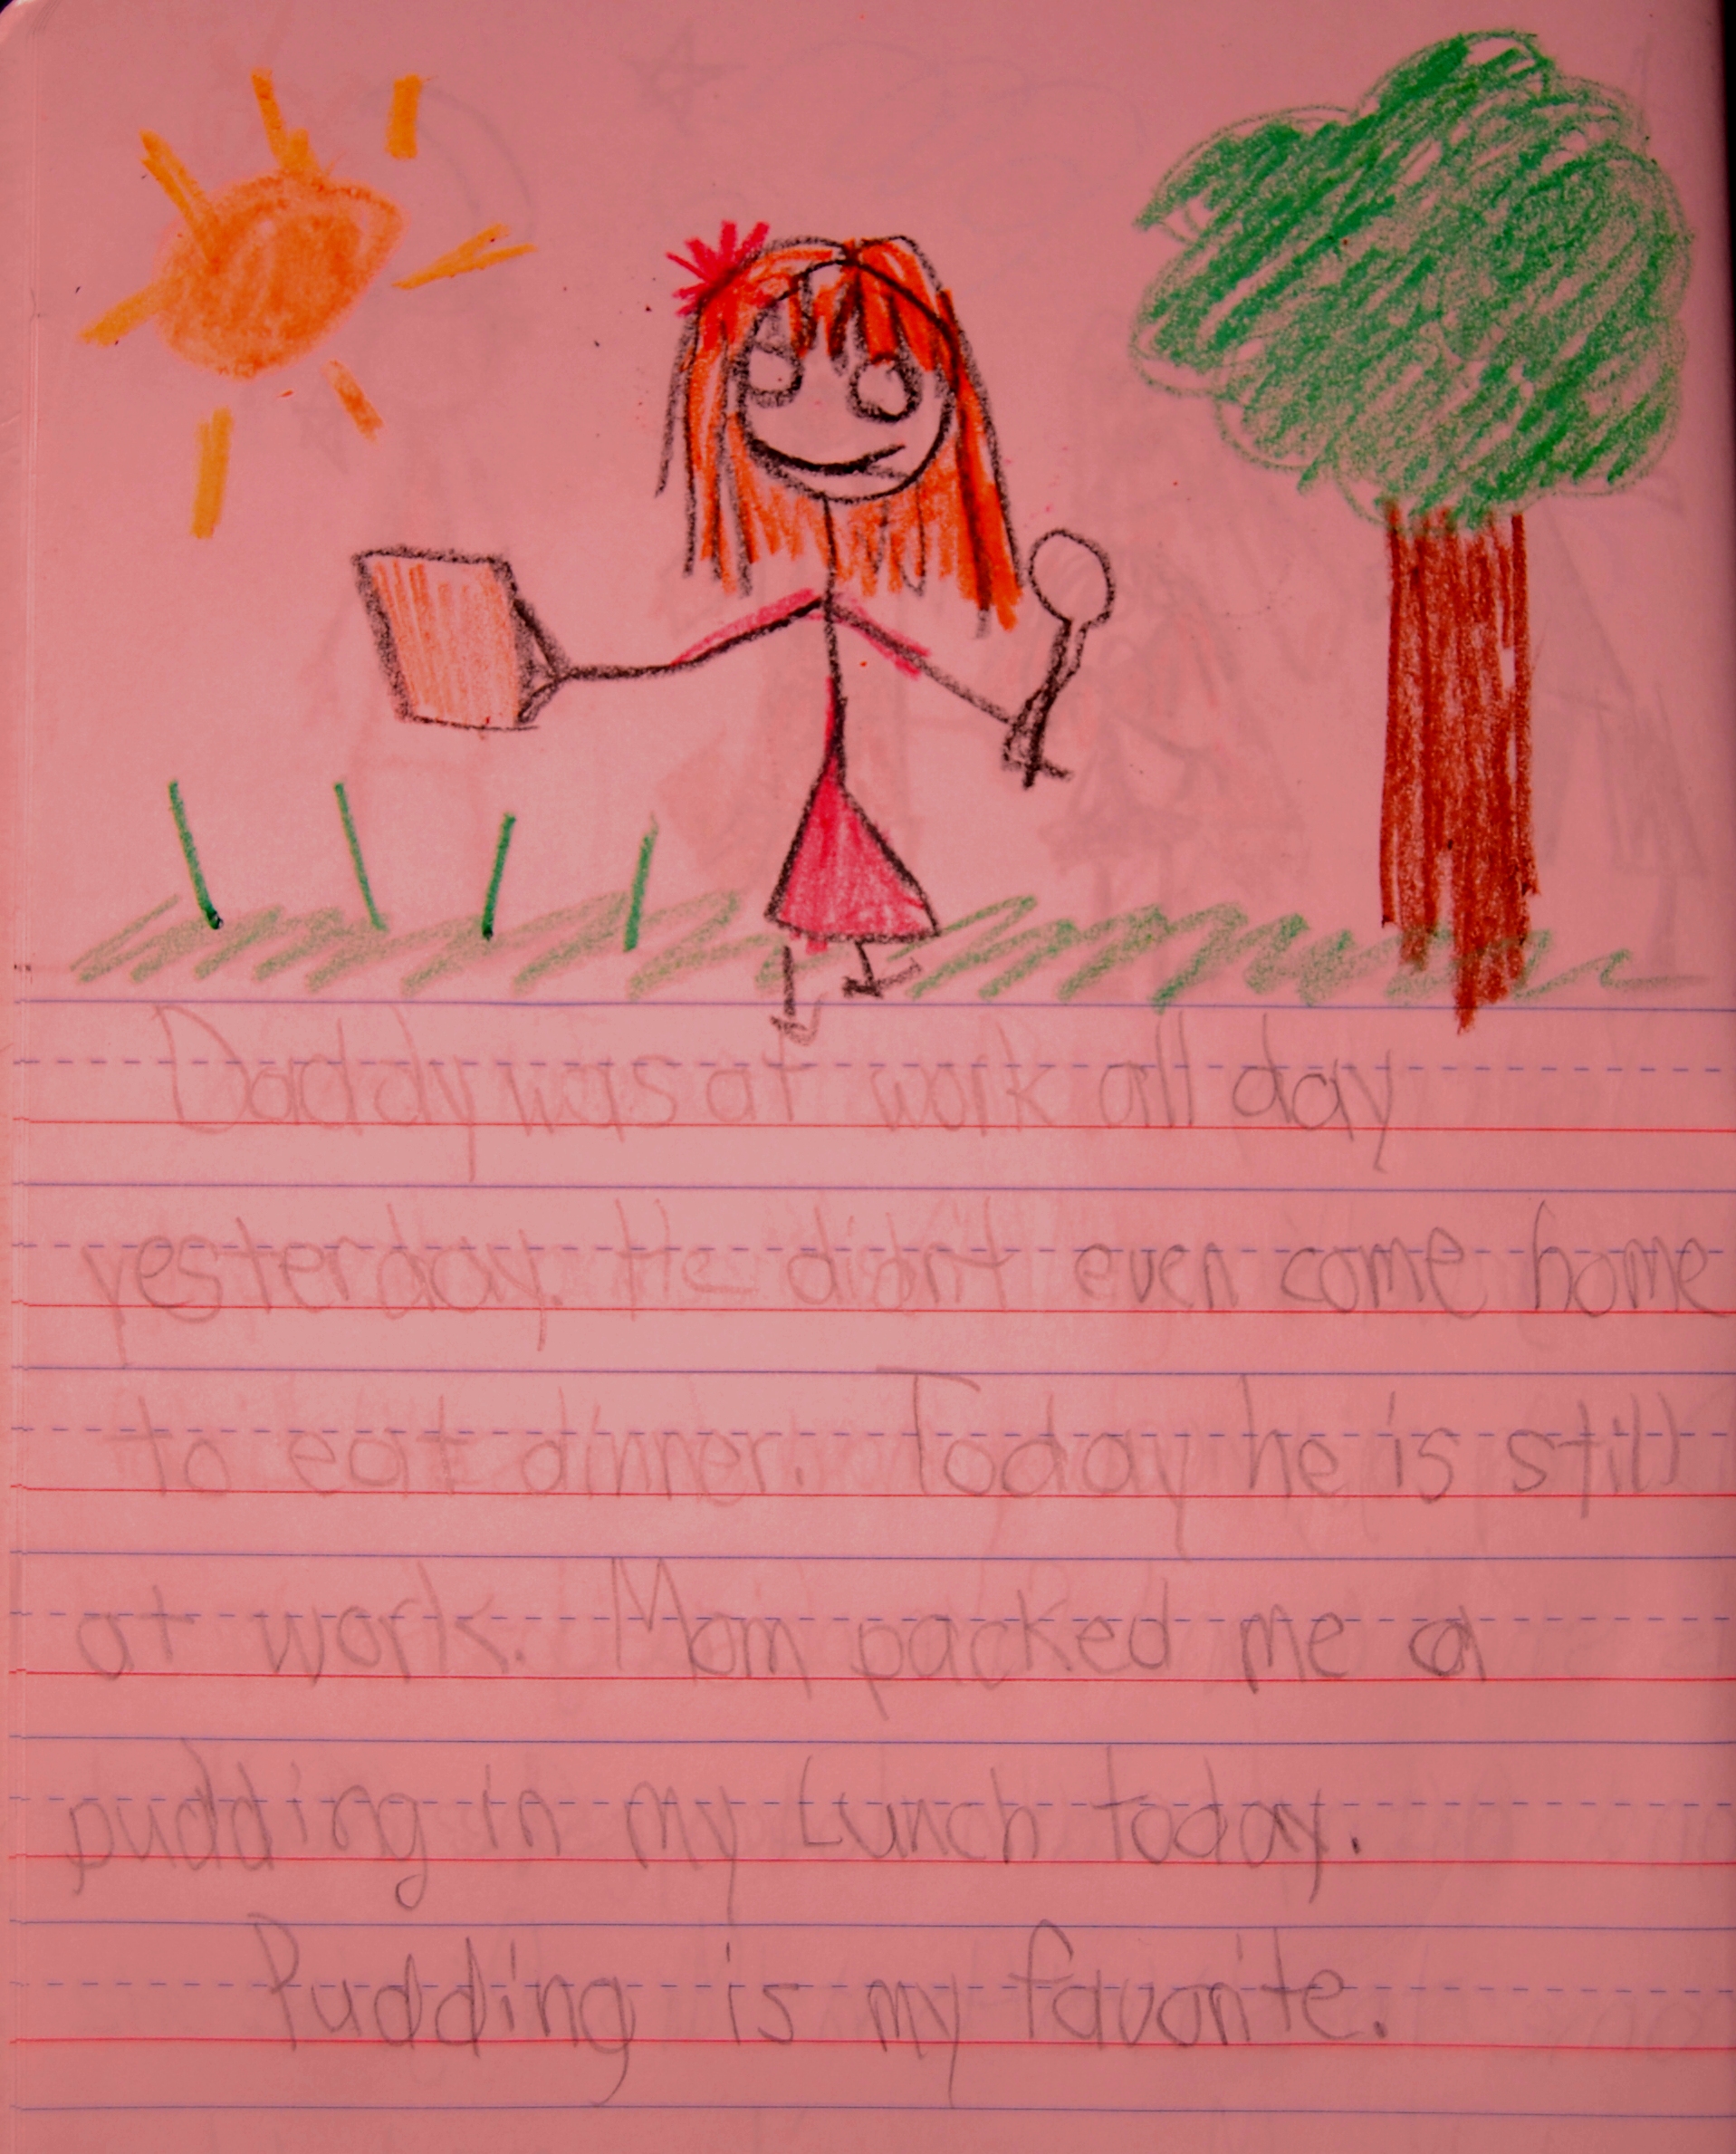 Daddy was at work all day
yesterday. He didn't even come home
to eat dinner. Today he is still
at work. Mom packed me a
pudding in my Lunch today.
Pudding is my favorite.